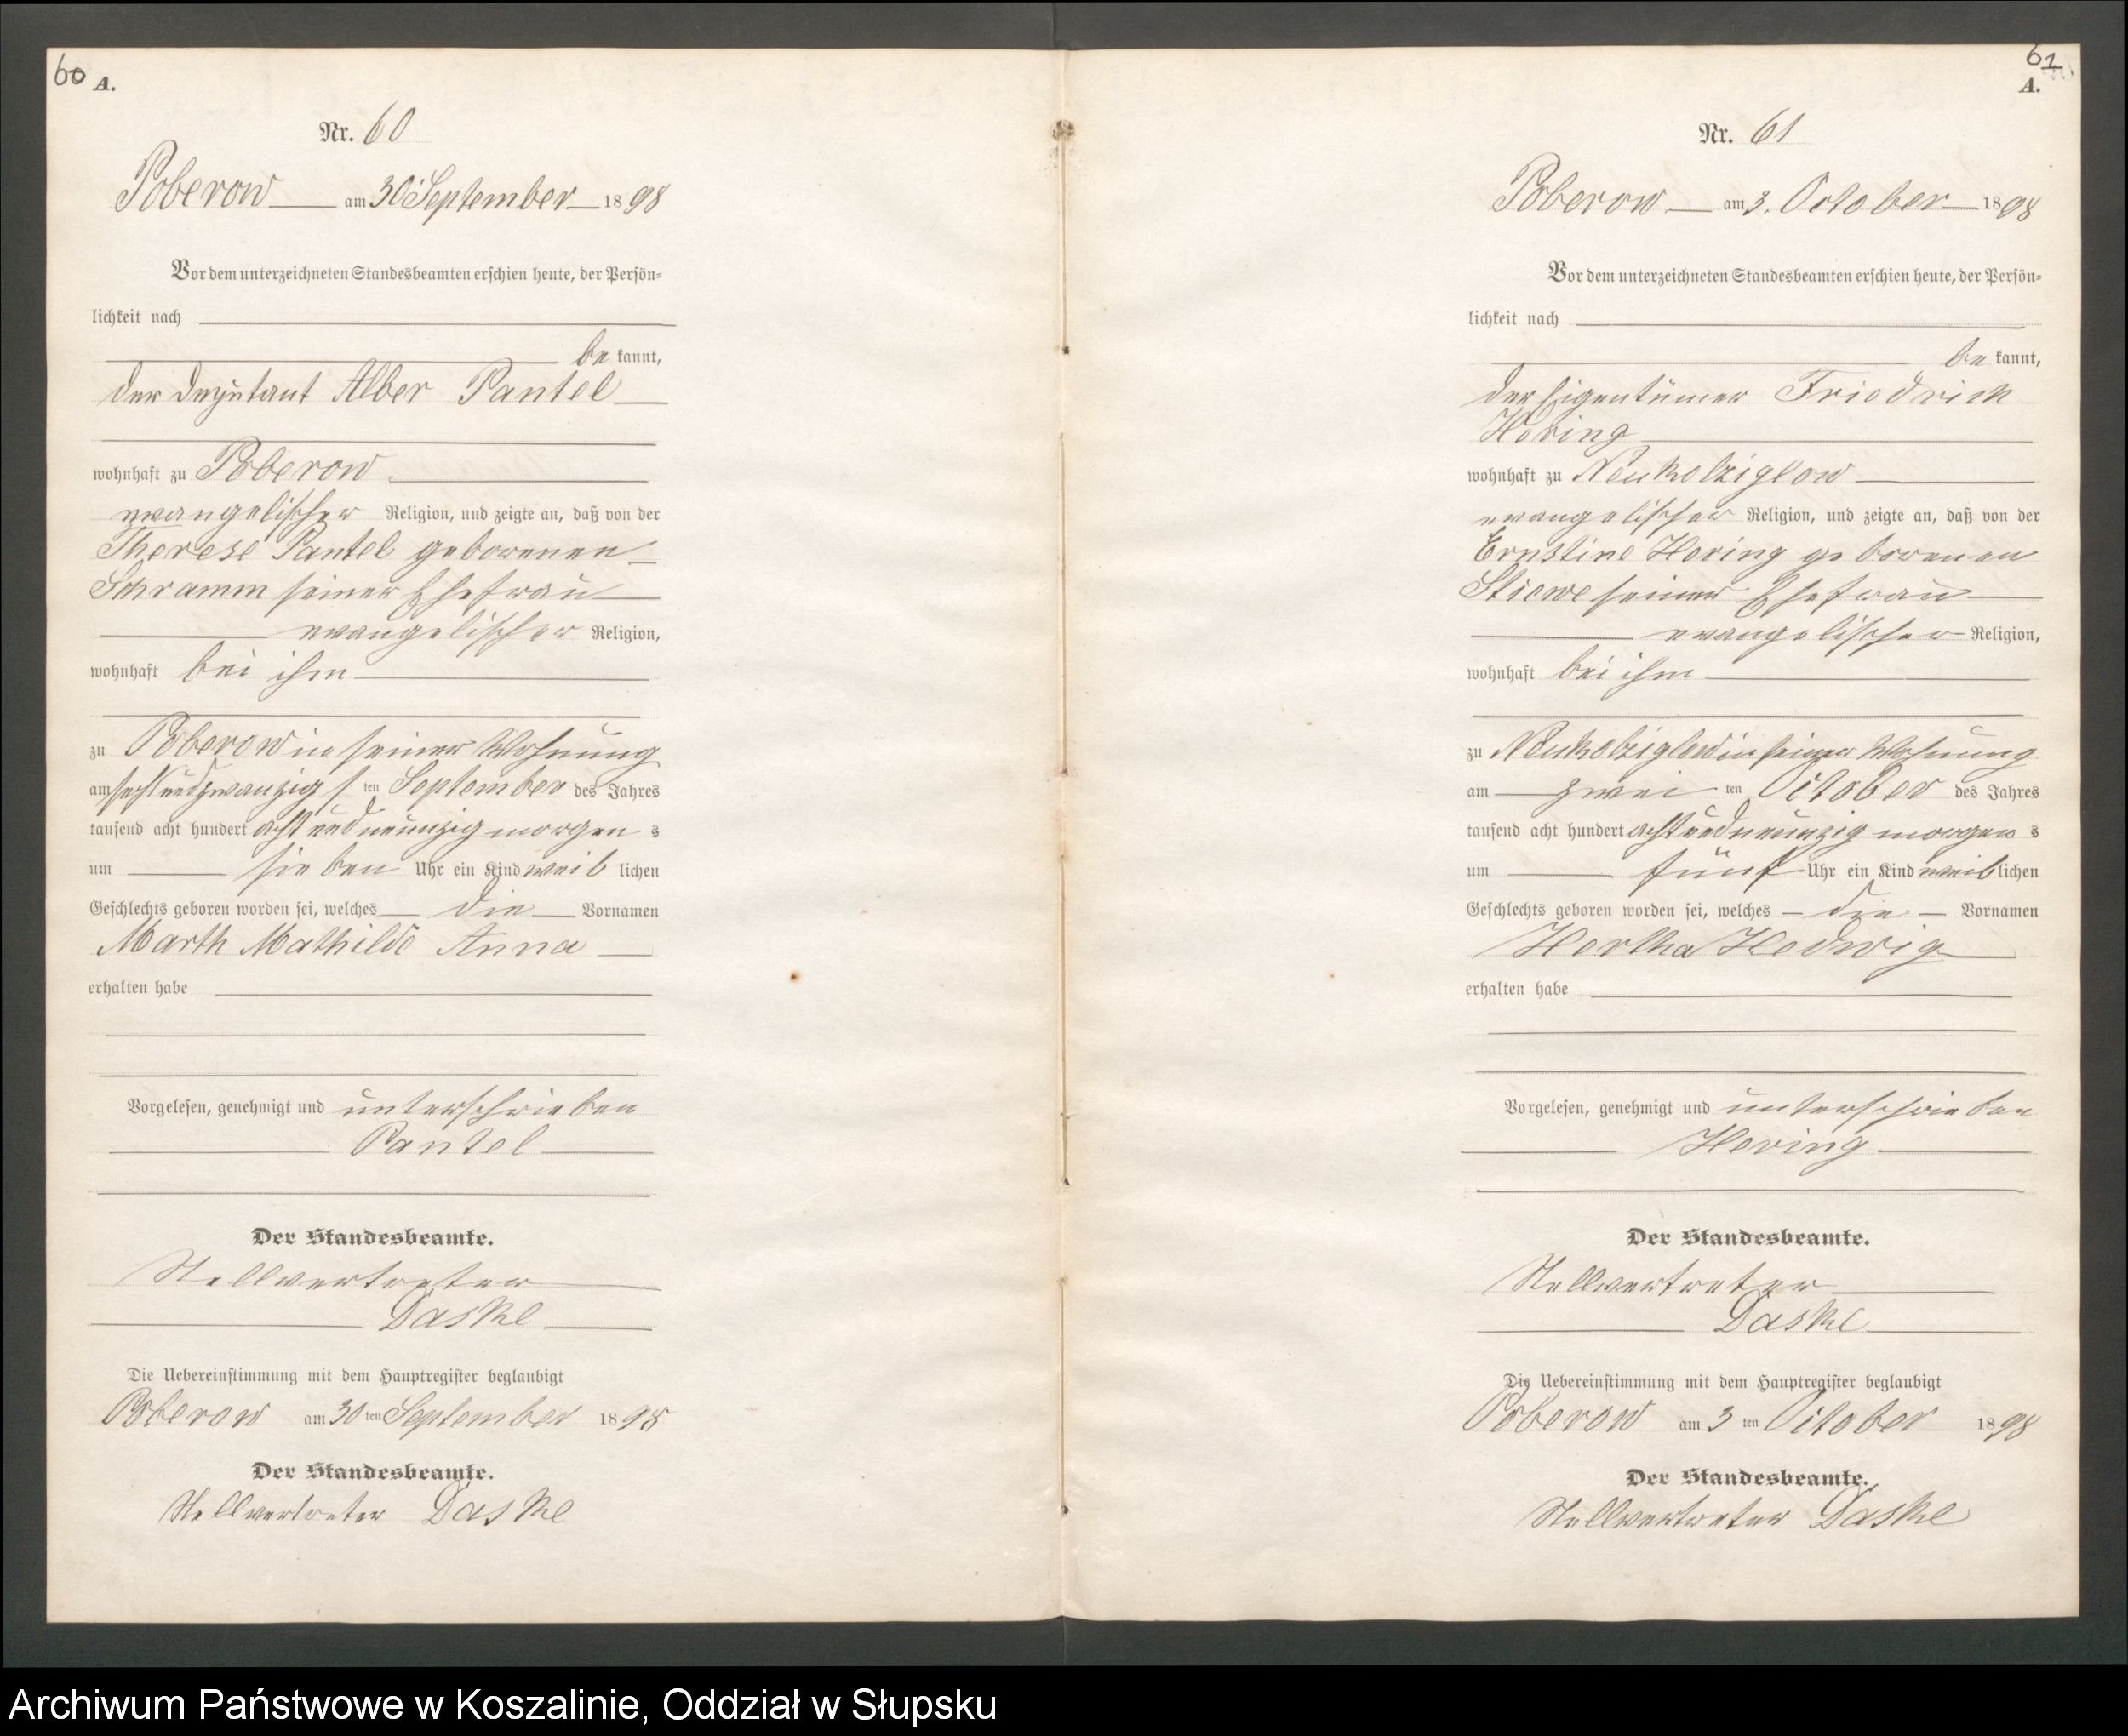 60 A.
Nr. 60
Poberow am 30 September 1898
Vor dem unterzeichneten Standesbeamten erschien heute, der Persön-
lichkeit nach
be kannt,
der Deputant Alber Pantel
wohnhaft zu Poberow
evangelischer Religion, und zeigte an, daß von der
Therese Pantel geborenen
Schramm seiner Ehefrau
evangelischer Religion,
wohnhaft bei ihm
zu Poberow in seiner Wohnung
am sechsundzwanzigs ten September des Jahres
tausend acht hundert acht und neunzig morgen s
um sieben Uhr ein Kind weib lichen
Geschlechts geboren worden sei, welches die Vornamen
Marth Mathilde Anna
erhalten habe
Vorgelesen, genehmigt und unterschrieben
Pantel
Der Standesbeamte.
Stellvertreter
Daske
Die Uebereinstimmung mit dem Hauptregister beglaubigt
Poberow am 30 ten September 1898
Der Standesbeamte.
Stellvertreter Daske
61
A.
Nr. 61
Poberow am 3. October 1898
Vor dem unterzeichneten Standesbeamten erschien heute, der Persön-
lichkeit nach
be kannt,
der Eigentümer Friedrich
Hering
wohnhaft zu Neukolziglow
evangelischer Religion, und zeigte an, daß von der
Ernstine Hering geborenen
Stiewe seiner Ehefrau
evangelischer Religion,
wohnhaft bei ihm
zu Neukolziglow in seiner Wohnung
am zwei ten October des Jahres
tausend acht hundert acht und neunzig morgen s
um fünf Uhr ein Kind weib lichen
Geschlechts geboren worden sei, welches die Vornamen
Hertha Hedwig
erhalten habe
Vorgelesen, genehmigt und unterschrieben
Hering
Der Standesbeamte.
Stellvertreter
Daske
Die Uebereinstimmung mit dem Hauptregister beglaubigt
Poberow am 3 ten October 1898
Der Standesbeamte.
Stellvertreter Daske
Archiwum Państwowe w Koszalinie, Oddział w Słupsku